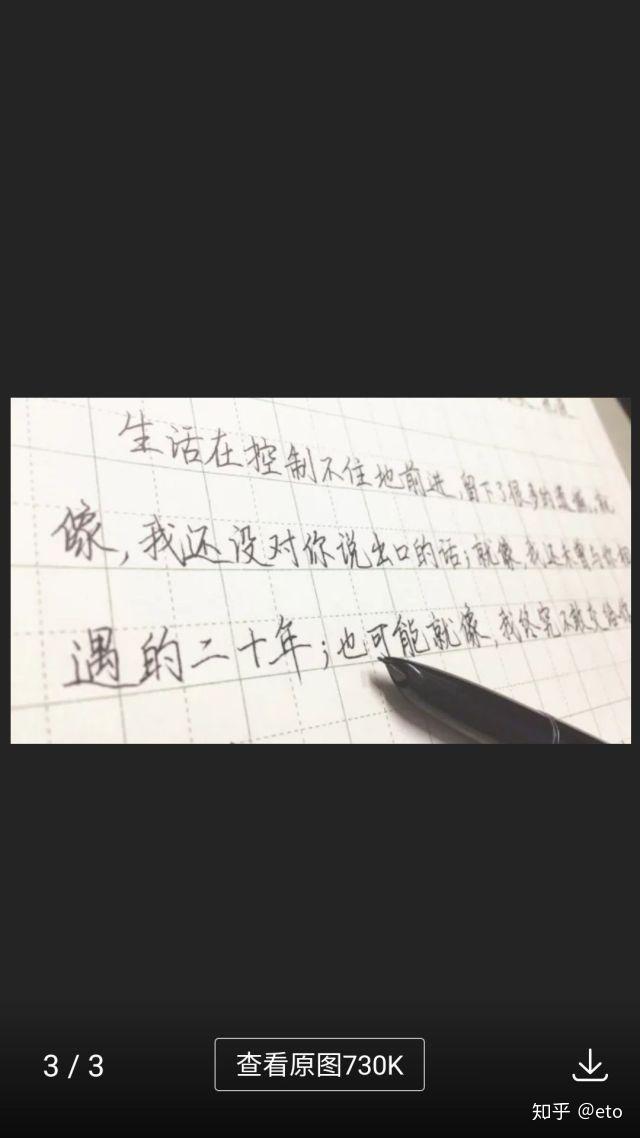 生活在控制不住地前进,留下了很多的遗憾,就
像,我还没对你说出口的话;就像,我还未曾与你相
遇的二十年;也可能就像,我终究不敢交给你
3 / 3
查看原图730K
知乎 @eto